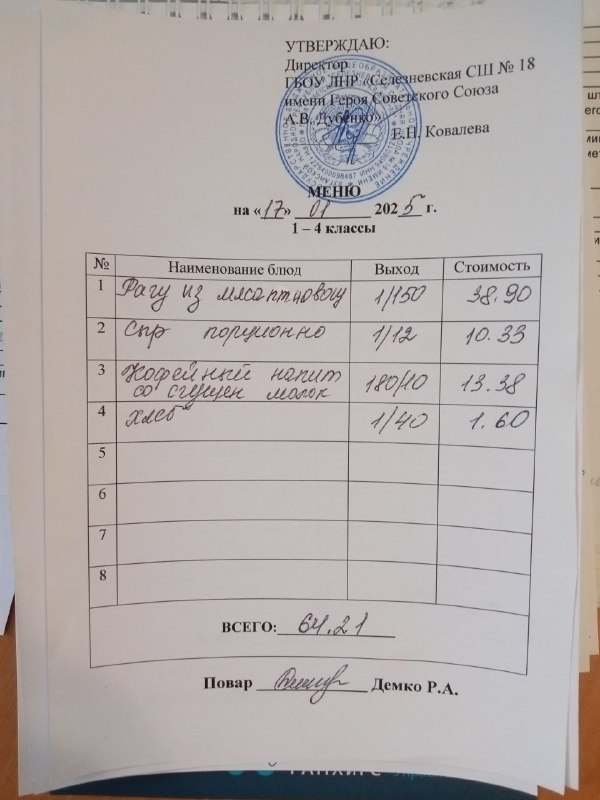 УТВЕРЖДАЮ:
Директор
ГБОУ ЛНР «Селезневская СШ № 18
имени Героя Советского Союза
А.В. Дубенко»
Е.П. Ковалева
МЕНЮ
на «17» 01 2025 г.
1 – 4 классы
№ Наименование блюд Выход Стоимость
1 Рагу из мясаптицовощ 1/150 38.90
2 Сыр порционно 1/12 10.33
3 Кофейный напит
со сгущен молок 180/10 13.38
4 хлеб 1/40 1.60
5
6
7
8
ВСЕГО: 64.21
Повар Демко Р.А.